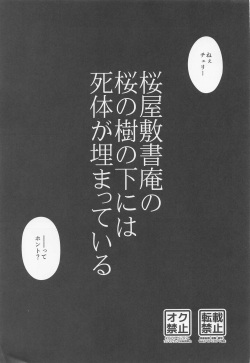 ねぇ
チェリー
桜屋敷書庵の
桜の樹の下には
死体が埋まっている
――って
ホント?
オク
禁止
転載
禁止